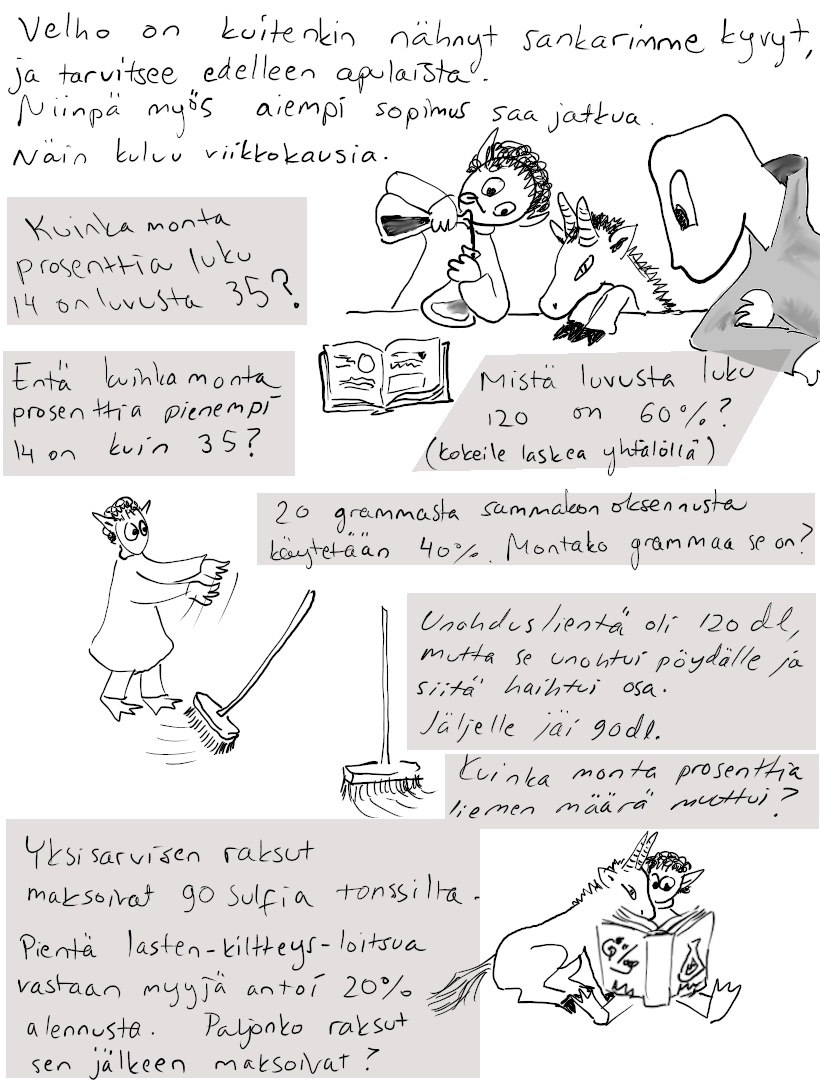 Velho on kuitenkin nähnyt sankarimme kyvyt,
ja tarvitsee edelleen apulaista.
Niinpä myös aiempi sopimus saa jatkua.
Näin kuluu viikkokausia.
Kuinka monta
prosenttia luku
14 on luvusta 35?
Entä kuinka monta
prosenttia pienempi
14 on kuin 35?
Mistä luvusta luku
120 on 60%?
(kokeile laskea yhtälöllä)
20 grammasta sammakon oksennusta
käytetään 40%. Montako grammaa se on?
Unohduslientä oli 120 dl,
mutta se unohtui pöydälle ja
siitä haihtui osa.
Jäljelle jäi 90dl.
Kuinka monta prosenttia
liemen määrä muuttui?
Yksisarvisen raksut
maksoivat 90 Sulfia tonssilta.
Pientä lasten-kiltteys-loitsua
vastaan myyjä antoi 20%
alennusta. Paljonko raksut
sen jälkeen maksoivat?